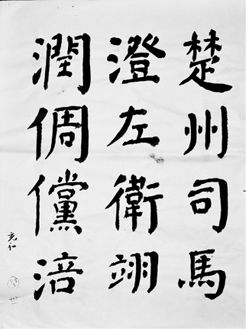 楚州司馬
澄左衛翊
潤倜儻涪